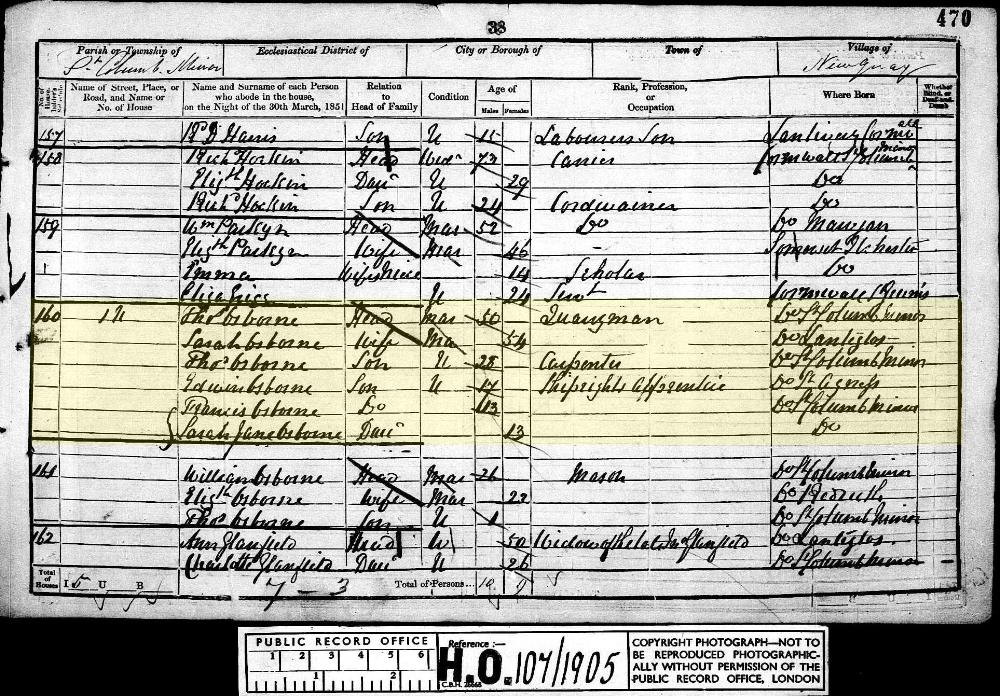 38
470
Parish or Township of Ecclesiastical District of City or Borough of Town of Village of
St Columb Minor New Quay
No. of House-holder's Schedule Name of Street, Place, or Road, and Name or No. of House Name and Surname of each Person who abode in the house, on the Night of the 30th March, 1851 Relation to Head of Family Condition Age of Males Females Rank, Profession, or Occupation Where Born Whether Blind, or Deaf-and-Dumb
157 Harris Son U 11 Labourers Son
158 Richd Hockin Head Widr 73 Cornwall St Columb Minor
Elizth Hockin Daur U 29 Do
Richd Hockin Son U 24 Cordwainer Do
159 Wm Parkyn Head Mar 52 Do Do Mawgan
Elizth Parkyn Wife Mar 46 - Somerset
Emma Wifes Niece 14 Scholar Do
Eliza U 24 Servt Cornwall
160 1 U Thos Osborne Head Mar 50 Quarryman Do St Columb Minor
Sarah Osborne Wife Mar 54 Do Lanteglos
Thos Osborne Son U 28 Carpenter Do St Columb Minor
Edwin Osborne Son U 17 Shiprights Apprentice Do St Agness
Francis Osborne Do 13 Do St Columb Minor
Sarah Jane Osborne Daur 13 Do
161 William Osborne Head Mar 26 Mason Do St Columb Minor
Elizth Osborne Wife Mar 22 Do Redruth
Thos Osborne Son U 1 Do St Columb Minor
162 Ann Glanfield Head W 50 Widow of the late Glanfield Do Lanteglos
Charlotte Glanfield Daur U 26 Do St Columb Minor
Total of Houses I 5 U B 7 - 3 Total of Persons... 10 9
PUBLIC RECORD OFFICE
1 2 3 4 5 6
1 2
Reference :-
H.O. 107/1905
C.B.H. 26668
COPYRIGHT PHOTOGRAPH—NOT TO
BE REPRODUCED PHOTOGRAPHIC-
ALLY WITHOUT PERMISSION OF THE
PUBLIC RECORD OFFICE, LONDON